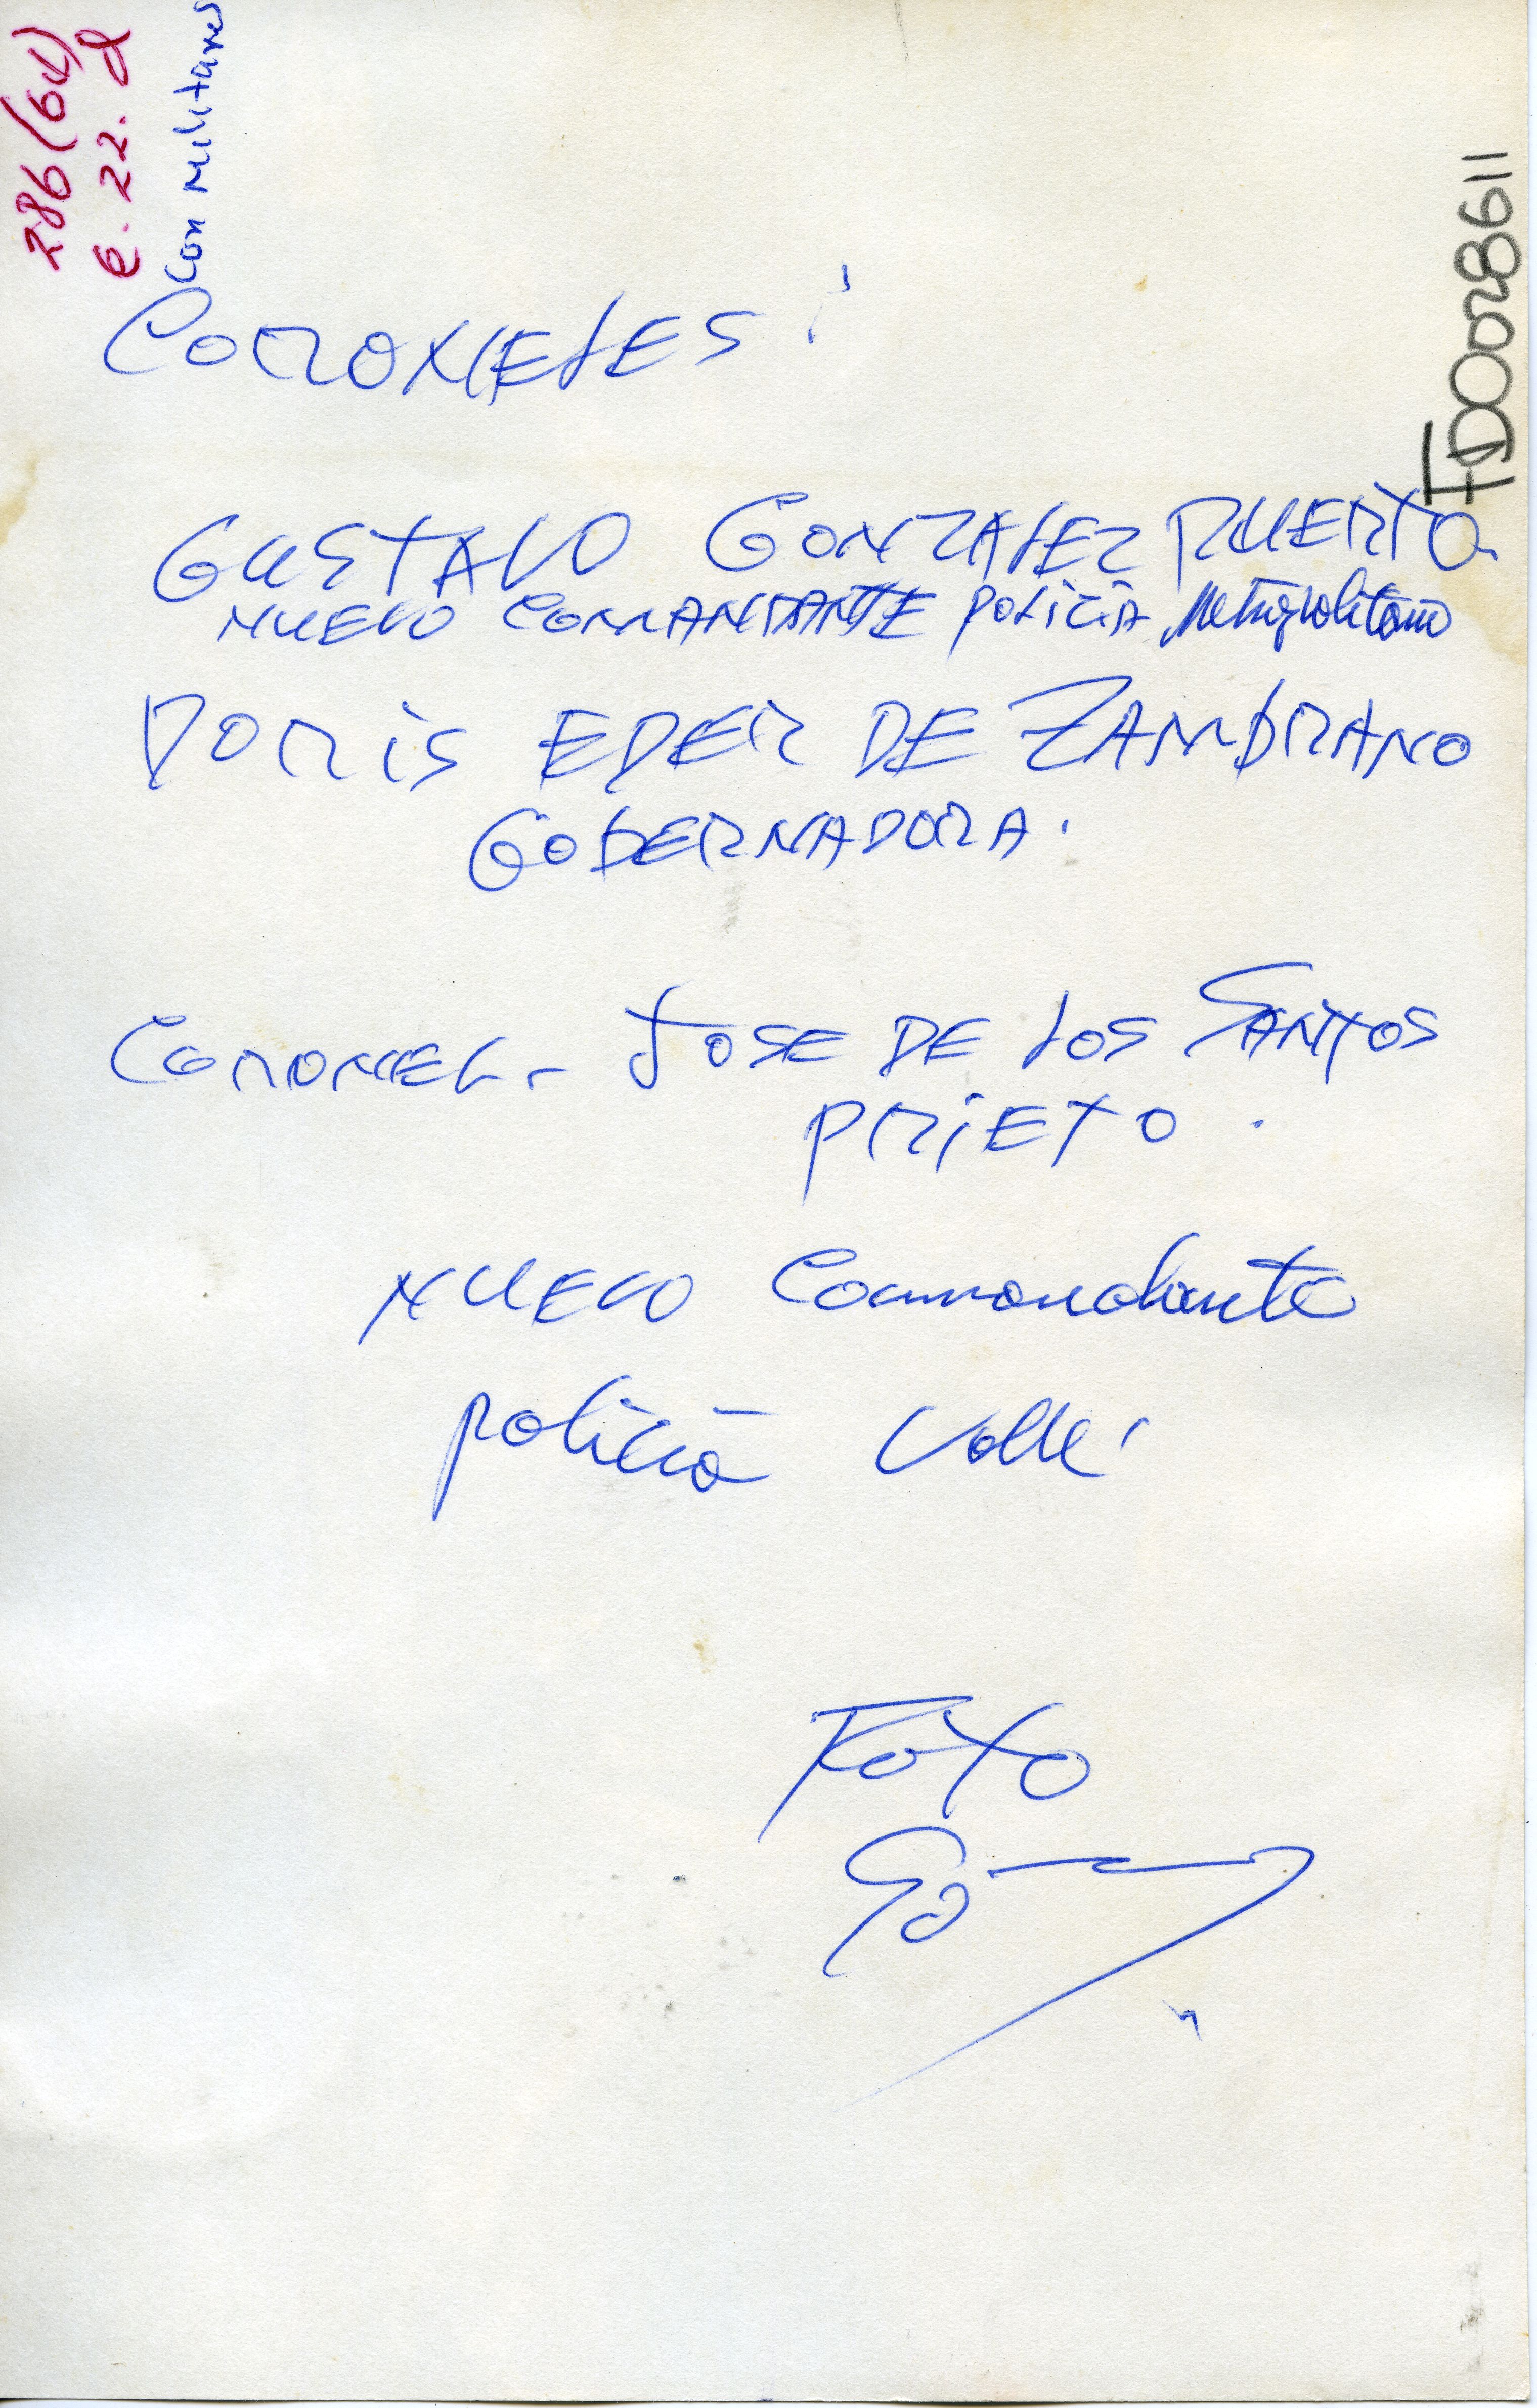 286(64)
e. 22. 8
Con Militares
FD0028611
CORONELES:
GUSTAVO GONZALEZ PUERTO.
NUEVO COMANDANTE POLICIA Metropolitana
DORIS EDER DE ZAMBRANO
GOBERNADORA.
CORONEL- JOSE DE LOS SANTOS
PRIETO.
NUEVO Comandante
policia Valle
Foto